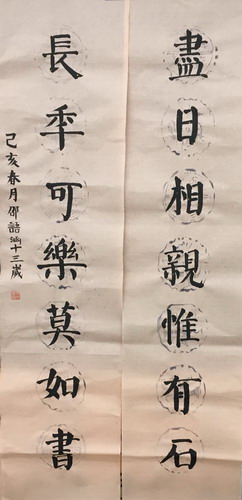 盡日相親惟有石
長年可樂莫如書
己亥春月邵喆涵十三歲